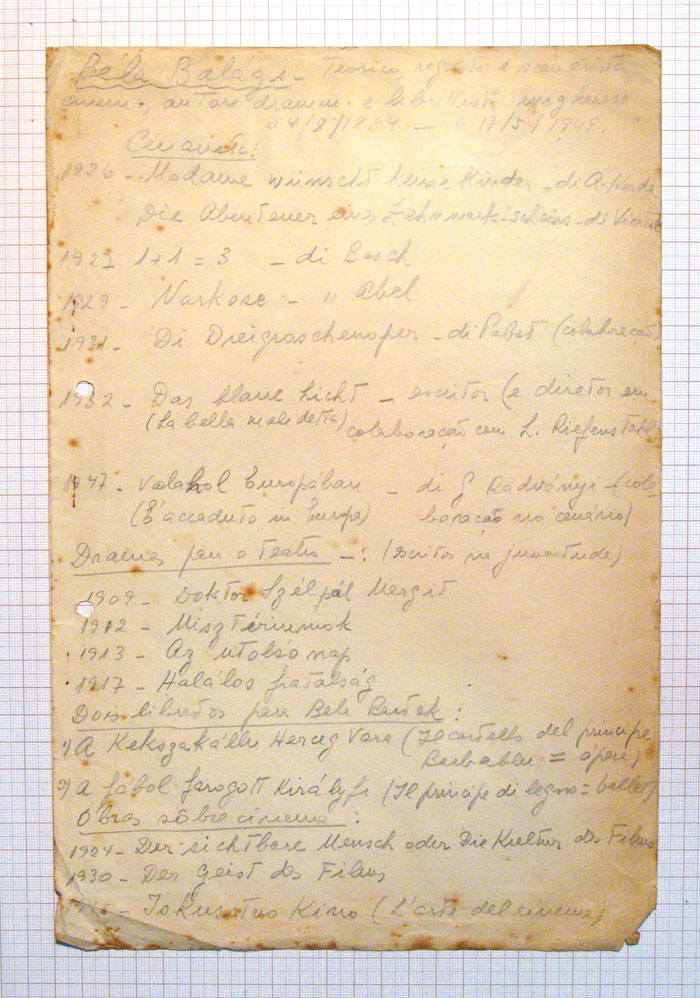 Béla Balágs - Teorico, regista e scenarista
cinem., autore dramm. e librettista ungherese
4/8/1884 - + 17/5/1949.
Cenarista:
1926 - Madame wünscht keine Kinder - di A. Korda
Die Abenteuer eines Zehnmark-scheins - di Viertel
1927 1+1=3 - di Basch
1929 - Narkose - " Abel
1931 - Di Dreigroschenoper - di Pabst (colaboração)
1932 - Das blaue Licht - escritor (e diretor em
(La bella maledetta) colaboração com L. Riefenstahl)
1947 - Valahol Európában - di G Radványi - (cola
(E' accaduto in Europa) boração no cenário)
Dramas para o teatro - : (escritos na juventude)
1909 - Doktor Szélpál Margit
1912 - Misztériumok
1913 - Az utolsó nap
1917 - Halálos fiatalság
Dois libretos para Bela Bartok :
1) A Kekszakállu Herceg Vara (Il castello del principe
Barbablu = ópera)
2) A fából faragott Királyfi (Il principe di legno = ballet)
Obras sôbre cinema :
1924 - Der sichtbare Mensch oder Die Kultur des Films
1930 - Der Geist des Films
Iskusstvo Kino (L'arte del cinema)